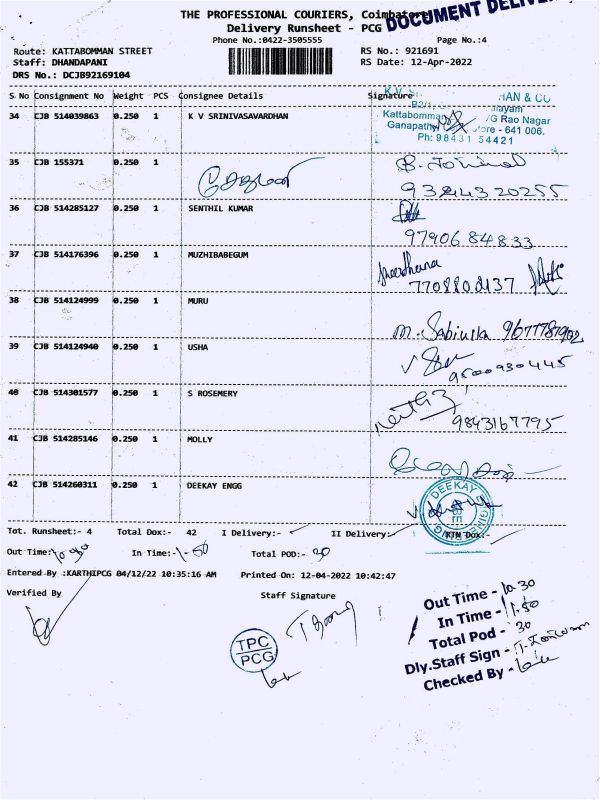 THE PROFESSIONAL COURIERS, Coimbatore
DOCUMENT
Delivery Runsheet - PCG
Phone No.:0422-3505555
Page No.:4
Route: KATTABOMMAN STREET
RS No.: 921691
Staff: DHANDAPANI
RS Date: 12-Apr-2022
DRS No.: DCJB92169104
S No Consignment No Weight PCS Consignee Details Signature
34 CJB 514039863 0.250 1 K V SRINIVASAVARDHAN
HAN & CO
Kattabomman /G Rao Nagar
Ganapathy ore - 641 006.
Ph: 98431 54421
35 CJB 155371 0.250 1
9384320255
36 CJB 514285127 0.250 1 SENTHIL KUMAR
97906 84833
37 CJB 514176396 0.250 1 MUZHIBABEGUM
38 CJB 514124999 0.250 1 MURU
39 CJB 514124940 0.250 1 USHA
9500930445
40 CJB 514301577 0.250 1 S ROSEMERY
9843167795
41 CJB 514285146 0.250 1 MOLLY
42 CJB 514260311 0.250 1 DEEKAY ENGG
DEEKAY
Tot. Runsheet:- 4 Total Dox:- 42 I Delivery:- II Delivery:- Dox:-
Out Time:- 10.30 In Time:- 1.50 Total POD:- 30
Entered By :KARTHIPCG 04/12/22 10:35:16 AM Printed On: 12-04-2022 10:42:47
Verified By Staff Signature
TPC
PCG
Out Time - 10.30
In Time - 1.50
Total Pod - 30
Dly.Staff Sign -
Checked By -